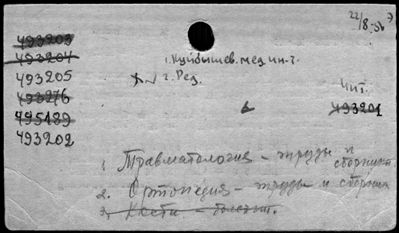 22/8-56 Э
493203
493204
493205
493276
495489
493202
1. Куйбышев. мед. ин-т.
г. Ред.
Чит.
493201
1. Травматология - труды и сборники
2. Ортопедия - труды и сборники
3. Кости - болезни.